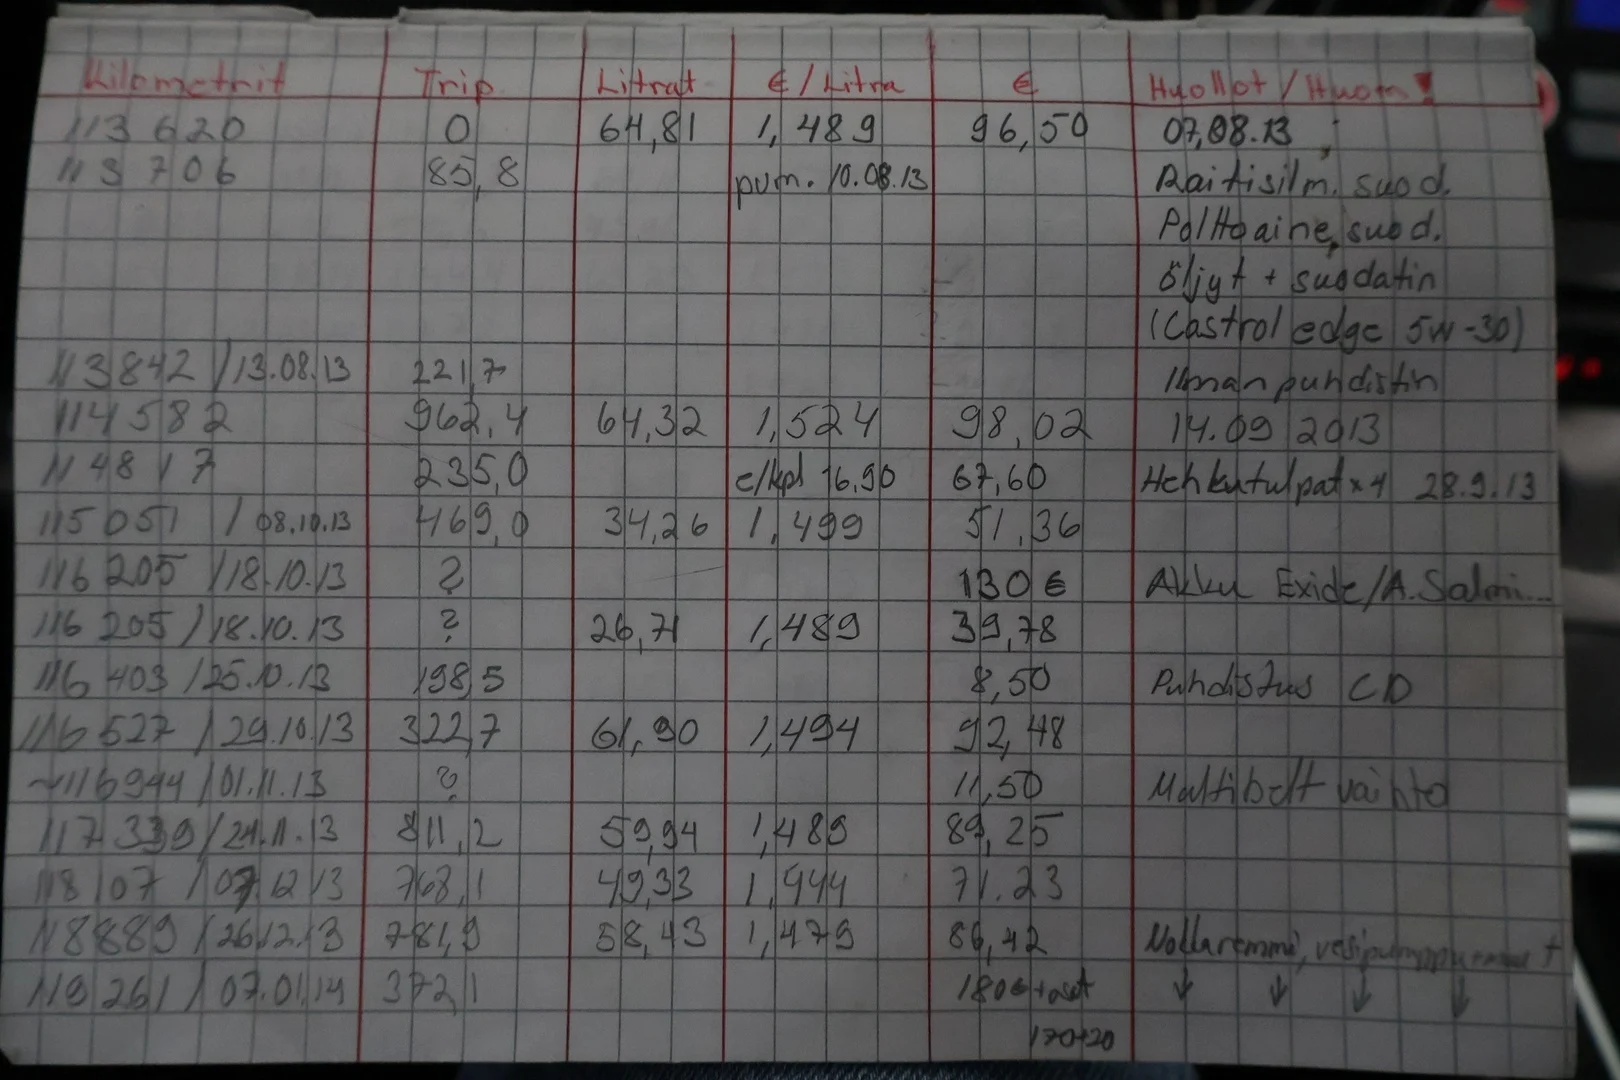 Kilometrit Trip Litrat €/Litra € Huollot/Huom!
113 620 0 64,81 1,489 96,50 07,08.13
113 706 85,8 pvm. 10.08.13 Raitisilm. suod.
Polttoaine, suod.
öljyt + suodatin
(Castrol edge 5W-30)
113842 /13.08.13 221,7 Ilmanpuhdistin
114582 962,4 64,32 1,524 98,02 14.09 2013
114817 235,0 €/kpl 16,90 67,60 Hehkutulpat x4 28.9.13
115051 / 08.10.13 469,0 34,26 1,499 51,36
116205 /18.10.13 ? 130€ Akku Exide/A.Salmi...
116 205/18.10.13 ? 26,71 1,489 39,78
116 403 /25.10.13 198,5 8,50 Puhdistus CD
116 527 /29.10.13 322,7 61,90 1,494 92,48
~116944/01.11.13 ? 11,50 Multibelt vaihto
117 339/24.11.13 811,2 59,94 1,489 89,25
118107 /07.12 13 768,1 49,33 1,444 71.23
118889 /26.12.13 781,9 58,43 1,479 86,42 Nollaremmi, +
119261 / 07.01.14 372,1 180€+osat ↓ ↓ ↓ ↓
170+20